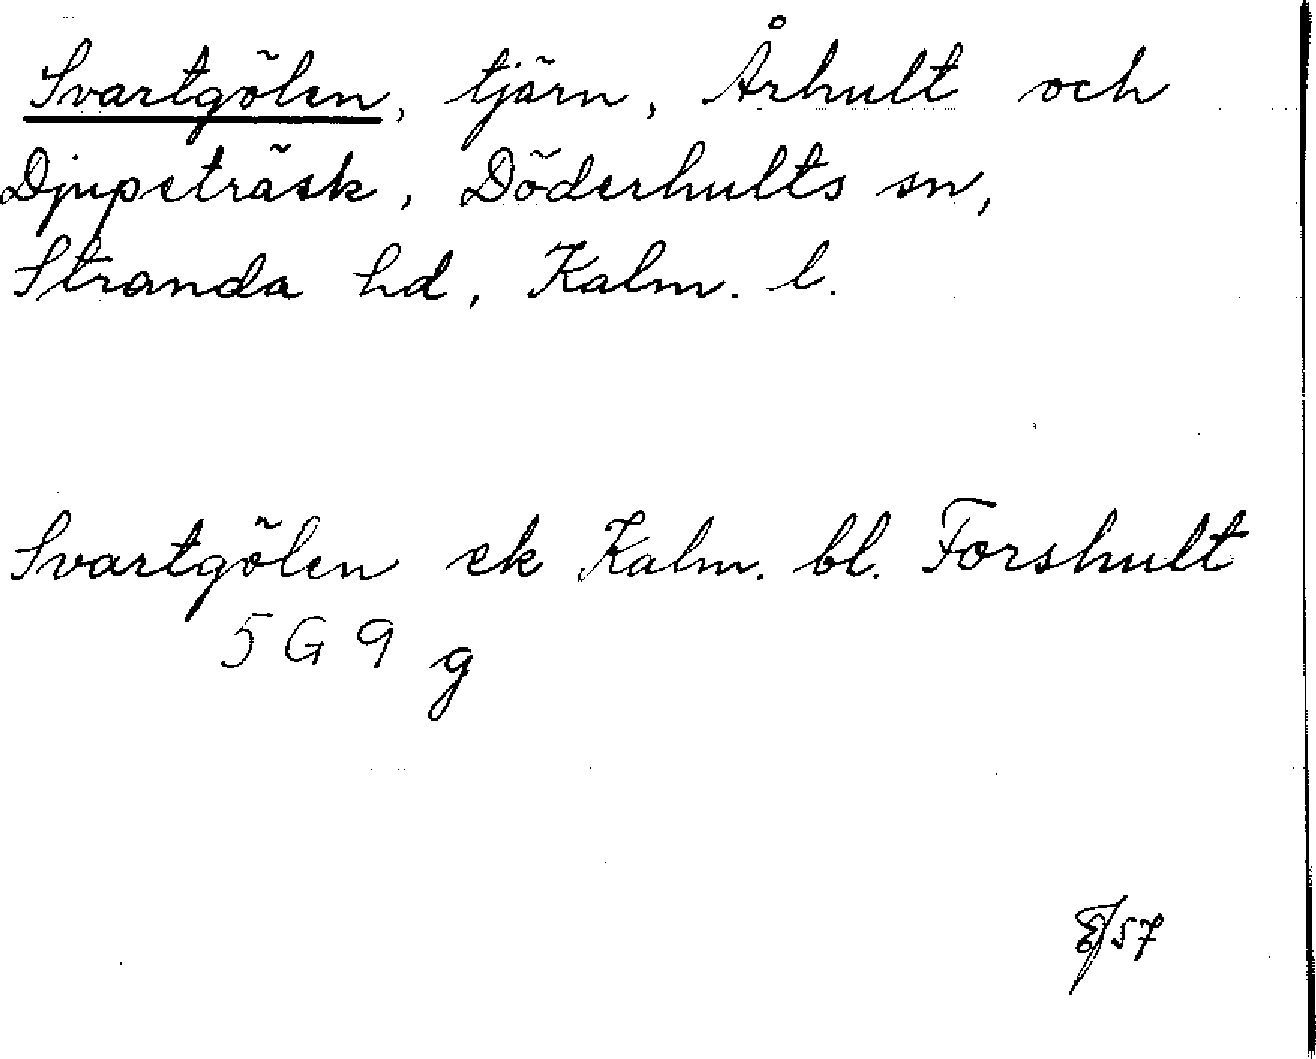 Svartgölen, tjärn, Århult och
Djupeträsk, Döderhults sn,
Stranda hd, Kalm. l.
Svartgölen ek Kalm. bl. Forshult
5 G 9 g
57